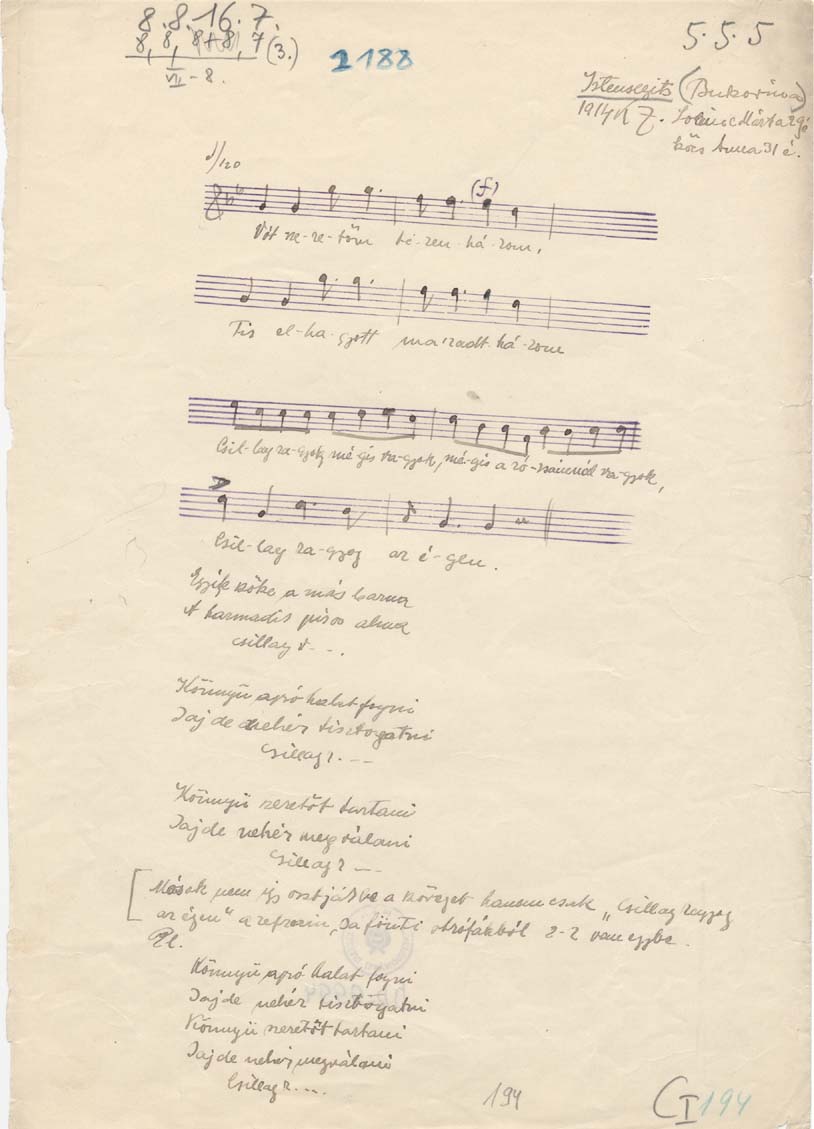 8. 8. 16. 7.
8, 8, 8+8, 7 (3.)
VII - 8.
2188
5. 5. 5
Istensegits (Bukovina)
1914 K Z.
Anna 31 é.
♩/120
(f)
Vót sze-re-tőm ti-zen-há-rom,
Tiz el-ha-gyott maradt há-rom
Csil-lag ra-gyog mé-gis va-gyok, mé-gis a ró-zsámnál va-gyok,
Csil-lag ra-gyog az é-gen.
Egyik szőke a más barna
A harmadik piros alma
csillag r - - .
Könnyü apró halat fogni
Jaj de nehéz tisztogatni
Csillag r. - -
Könnyü szeretőt tartani
Jaj de nehéz megválani
Csillag r - -
Mások nem igy osztják be a szöveget hanem csak „Csillag ragyog
az égen" a refrain, s a fönti strófákból 2-2 van egybe.
Pl.
Könnyü apró halat fogni
Jaj de nehéz tisztogatni
Könnyü szeretőt tartani
Jaj de nehéz megválani
Csillag r. - - .
194
C I 194